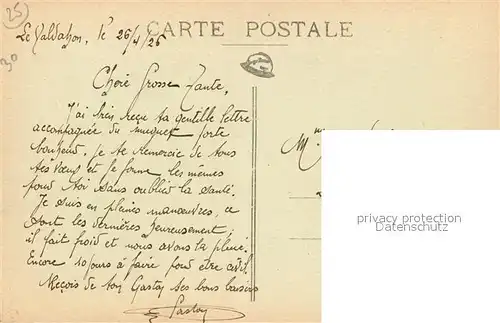 25
30
Le Valdahon, le 26/4/26
CARTE POSTALE
Chère Grosse Tante,
J'ai bien reçu ta gentille lettre
accompagnée du muguet porte
bonheur. Je te remercie de tous
tes vœux et je forme les mêmes
pour toi sans oublier la santé.
Je suis en pleines manœuvres, ce
sont les dernières heureusement,
il fait froid et nous avons la pluie.
Encore 10 jours à faire pour être civil.
Reçois de ton Gaston ses bons baisers
Gaston
M
privacy protection
Datenschutz